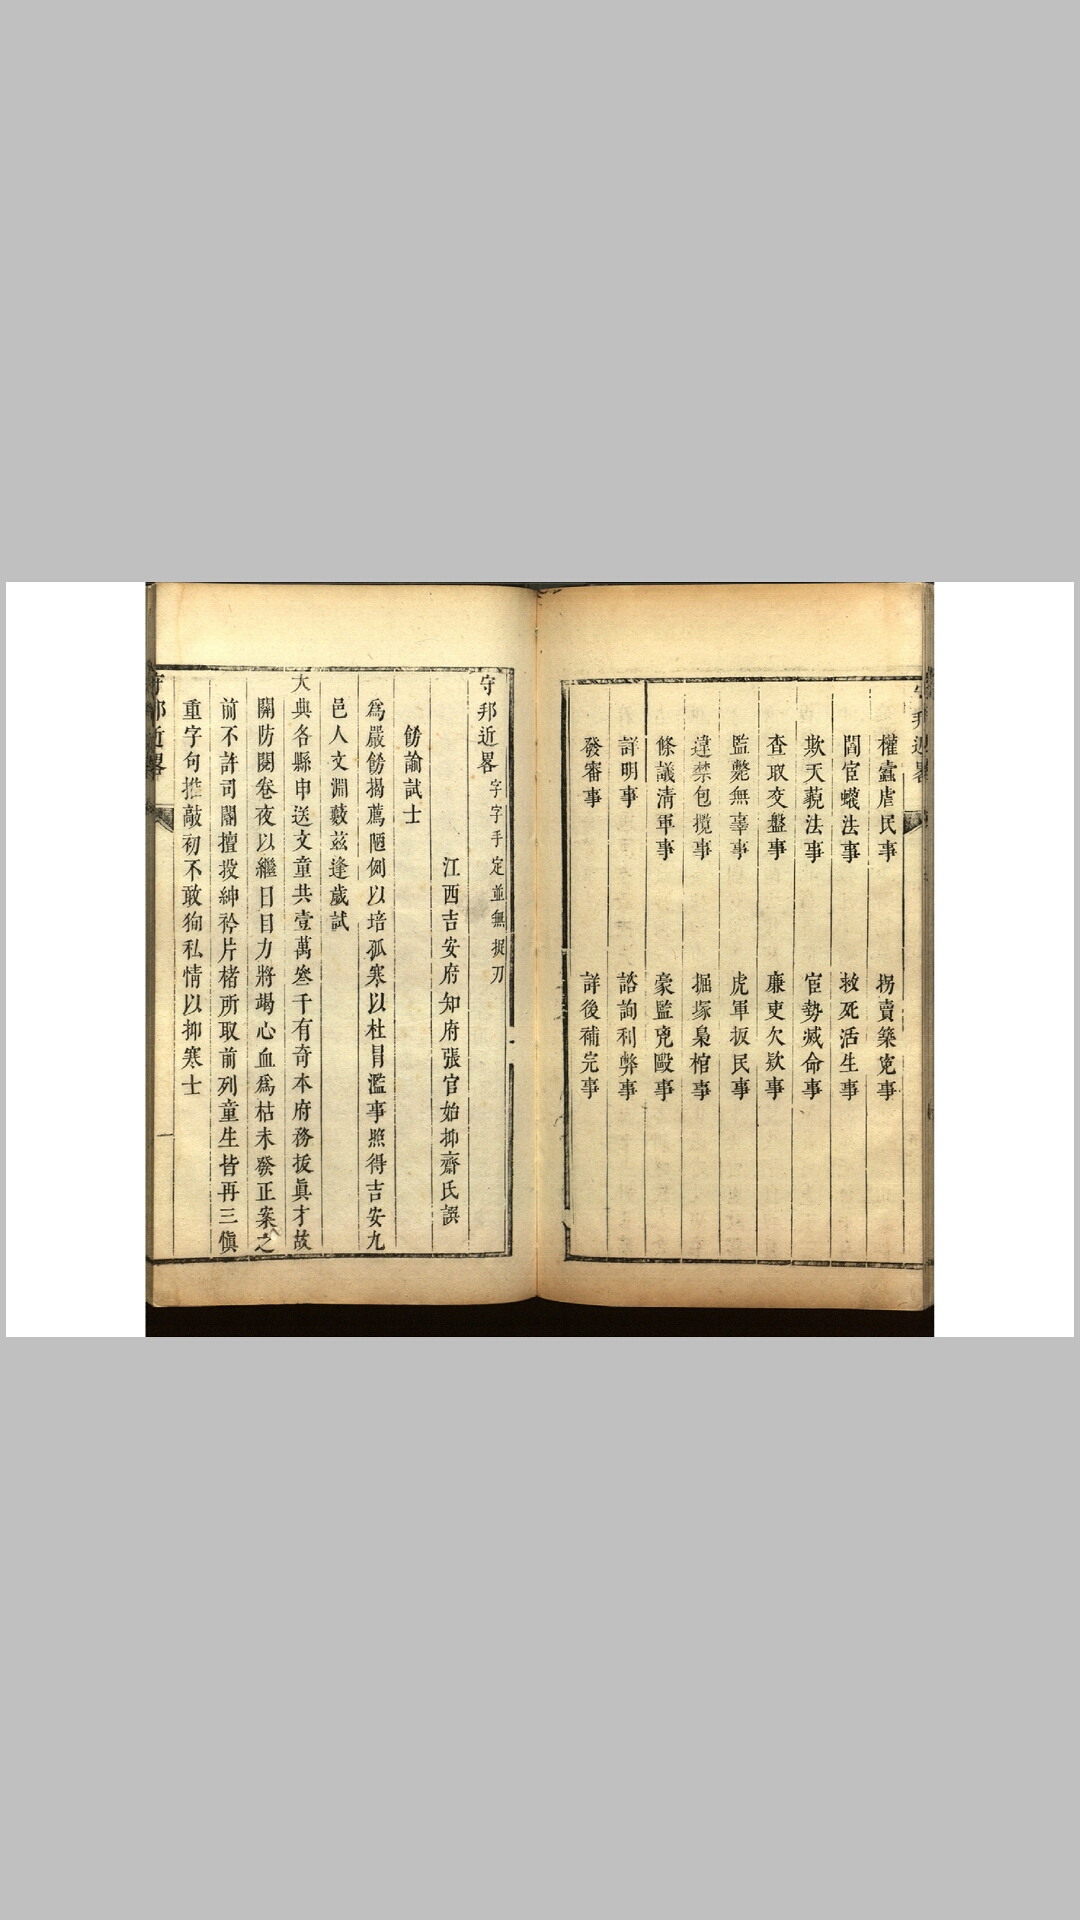 守邦近畧
權蠹虐民事
拐賣築寃事
閻宦蠛法事
救死活生事
欺天藐法事
宦勢滅命事
查取交盤事
廉吏欠欵事
監斃無辜事
虎軍扳民事
違禁包攬事
掘塚梟棺事
條議清軍事
豪監兇毆事
詳明事
諮詢利弊事
發審事
詳後補完事
守邦近畧 字字手定並無捉刀
江西吉安府知府張官始抑齋氏誤
飭諭試士
爲嚴飭揭薦陋例以培孤寒以杜冒濫事照得吉安九
邑人文淵藪茲逢歲試
大典各縣申送文童共壹萬叁千有奇本府務拔眞才故
關防閱卷夜以繼日目力將竭心血爲枯未發正案之
前不許司閽擅投紳衿片楮所取前列童生皆再三愼
重字句推敲初不敢狥私情以抑寒士
守邦近畧
一